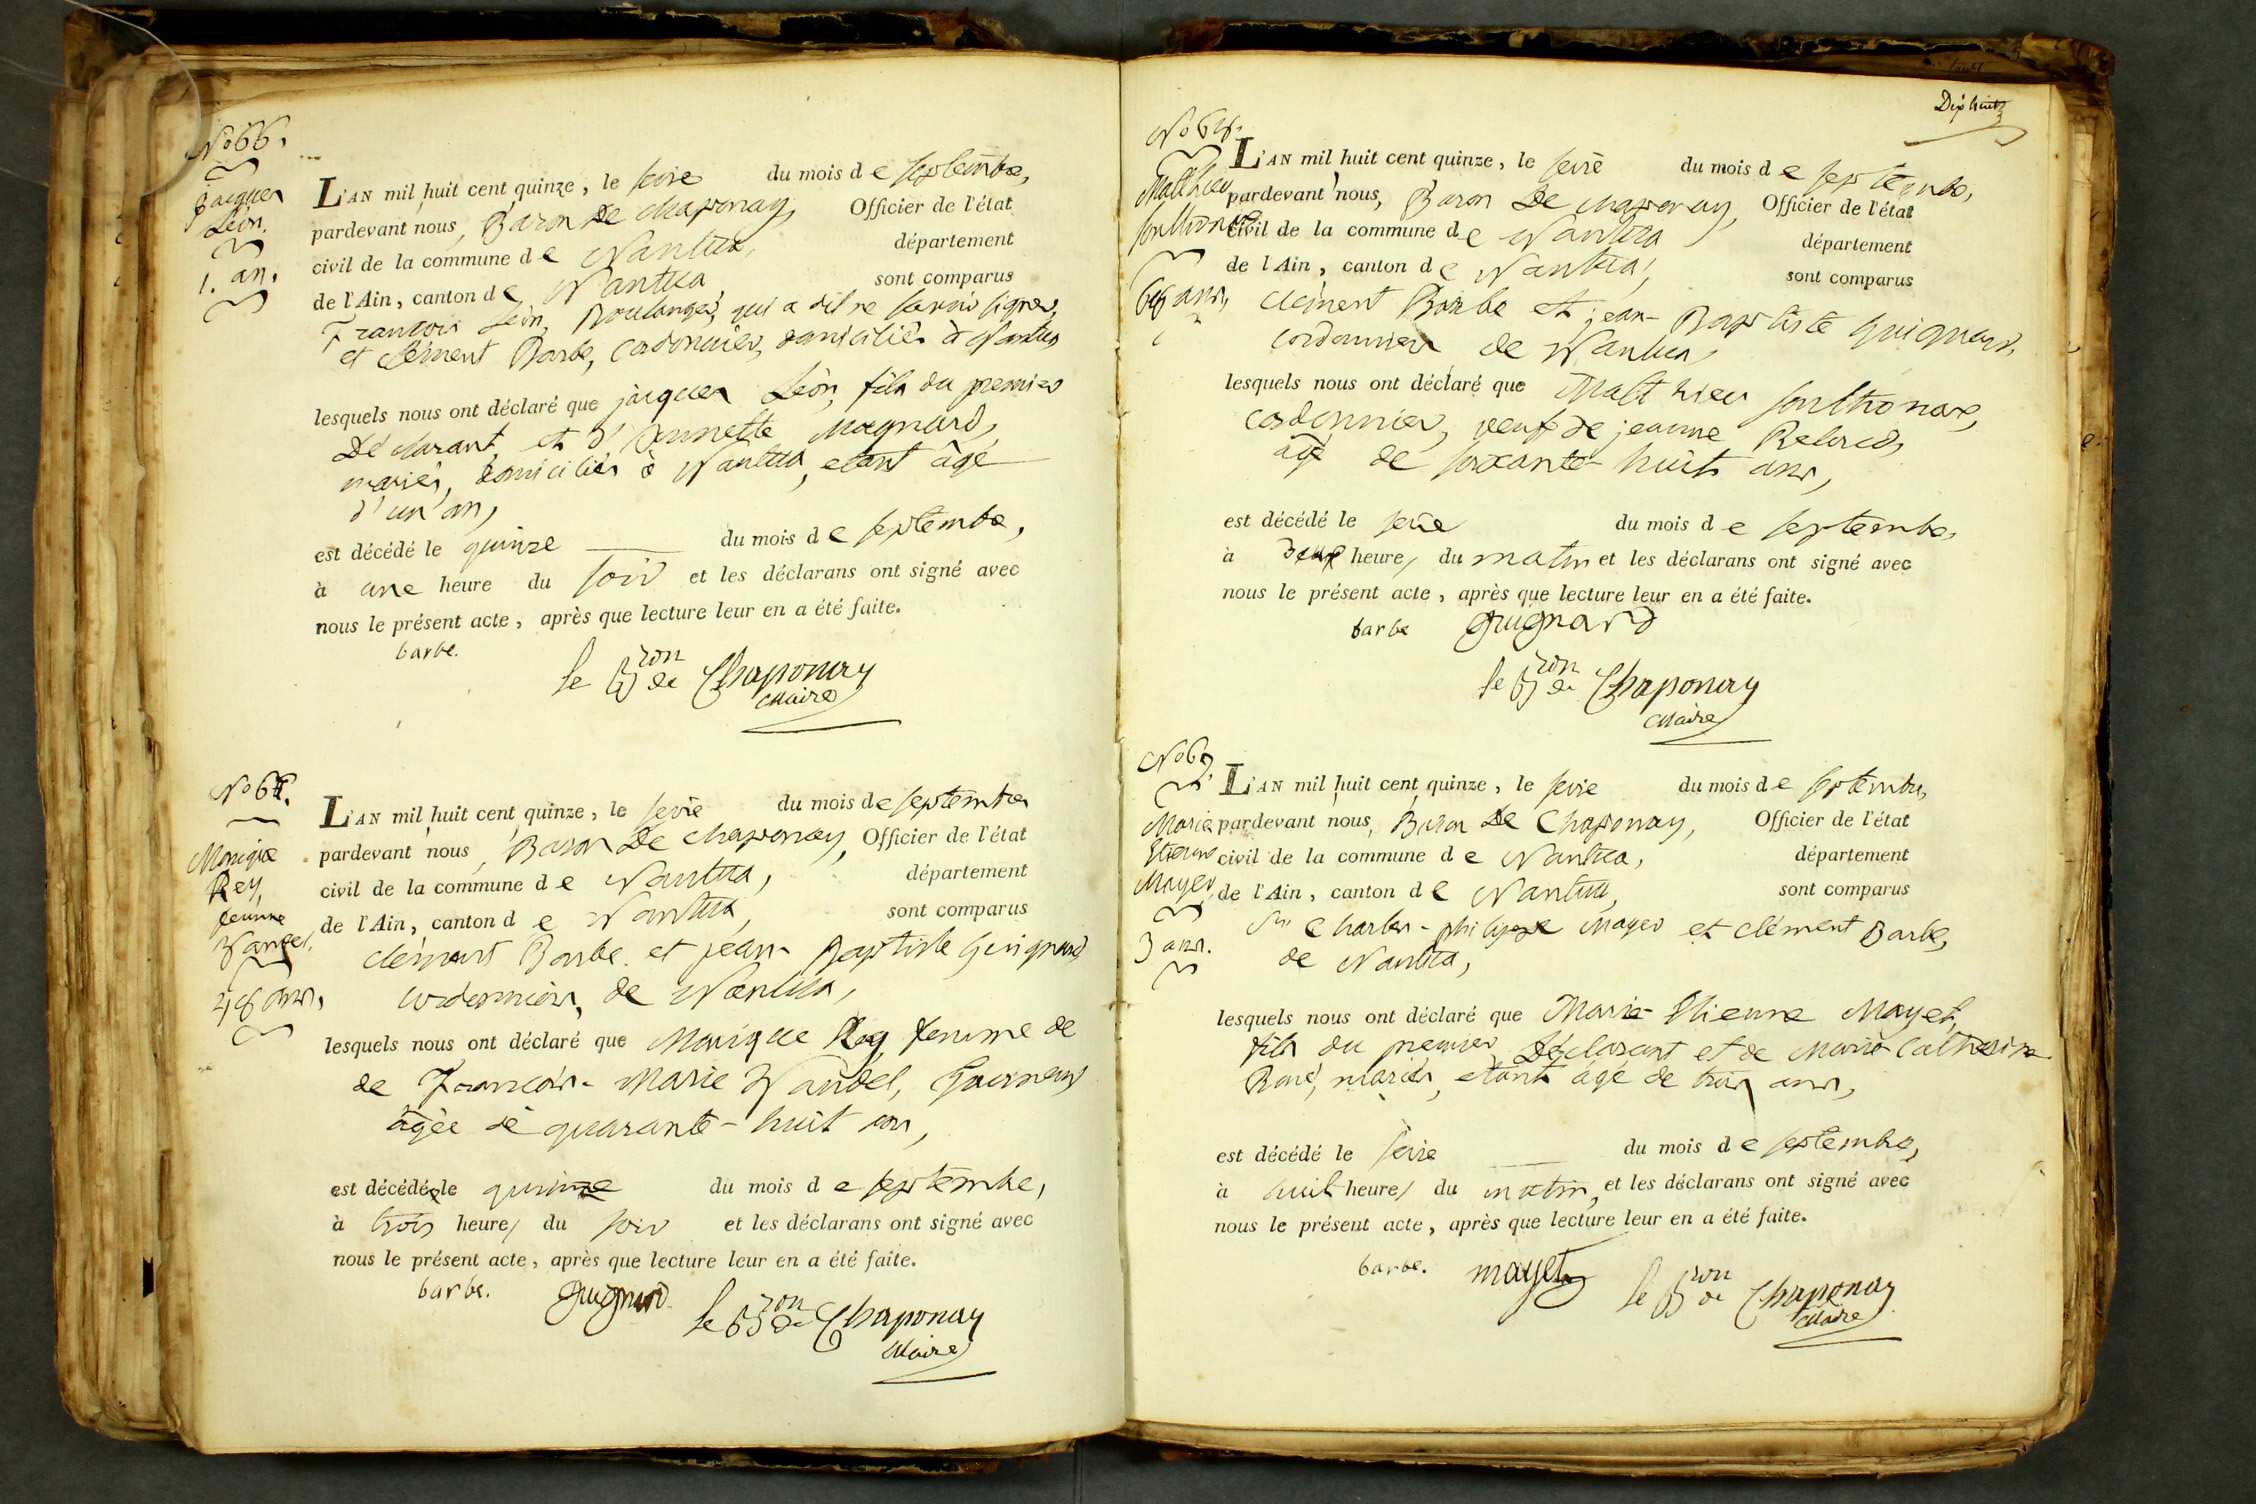 No 66.
Jacques
Léon.
1. an.
L'AN mil huit cent quinze, le seize du mois de septembre,
pardevant nous, Baron De Chaponay, Officier de l'état
civil de la commune de Nantua, département
de l'Ain, canton de Nantua sont comparus
François Léon, Boulanger, qui a dit ne savoir signer,
et Clément Barbe, cordonnier, domiciliés à Nantua
lesquels nous ont déclaré que jacques Léon, fils du premier
Déclarant et d'Annette Magnard,
mariés, domiciliés à Nantua, étant âgé
d'un an,
est décédé le quinze du mois de septembre,
à une heure du soir et les déclarans ont signé avec
nous le présent acte, après que lecture leur en a été faite.
barbe.
le Bron de Chaponay
Maire
Monique
Rey,
femme
48 ans.
L'AN mil huit cent quinze, le seize du mois de septembre
pardevant nous, Baron De Chaponay, Officier de l'état
civil de la commune de Nantua, département
de l'Ain, canton de Nantua, sont comparus
clément Barbe et jean-Baptiste Guignard,
cordonniers, de Nantua,
lesquels nous ont déclaré que Monique Rey, femme de
de François-Marie Vandel,
âgée de quarante-huit ans,
est décédée le quinze du mois de septembre,
à trois heures du soir et les déclarans ont signé avec
nous le présent acte, après que lecture leur en a été faite.
barbe. guignard
le Bron de Chaponay
Maire
Dix huit
Matthieu
Sonthonax
68 ans,
L'AN mil huit cent quinze, le seize du mois de septembre,
pardevant nous, Baron De Chaponay, Officier de l'état
civil de la commune de Nantua département
de l'Ain, canton de Nantua, sont comparus
clément Barbe et jean-Baptiste Guignard,
cordonniers de Nantua,
lesquels nous ont déclaré que Matthieu Sonthonax,
cordonnier, veuf de jeanne
âgé de soixante-huit ans,
est décédé le seize du mois de septembre,
à deux heures du matin et les déclarans ont signé avec
nous le présent acte, après que lecture leur en a été faite.
barbe guignard
le Bron de Chaponay
Maire
Marie
Etienne
Mayet,
3 ans.
L'AN mil huit cent quinze, le seize du mois de septembre,
pardevant nous, Baron De Chaponay, Officier de l'état
civil de la commune de Nantua, département
de l'Ain, canton de Nantua, sont comparus
Sr Charles-philippe Mayet et clément Barbe,
de Nantua,
lesquels nous ont déclaré que Marie-Etienne Mayet,
fils du premier Déclarant et de Marie-Catherine
mariés, étant âgé de trois ans,
est décédé le seize du mois de septembre,
à huit heures du matin, et les déclarans ont signé avec
nous le présent acte, après que lecture leur en a été faite.
barbe. mayet
le Bron de Chaponay
Maire